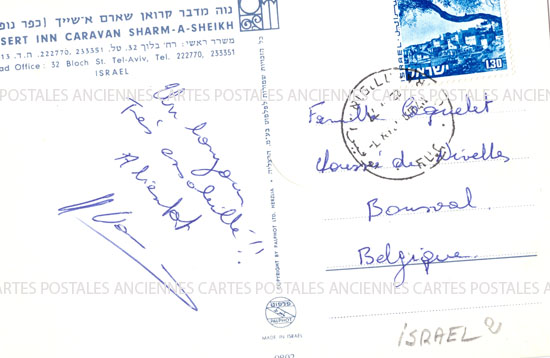 נוה מדבר קרואן שארם א־שייך (כפר נופ
SERT INN CARAVAN SHARM-A-SHEIKH
משרד ראשי: רח׳ בלוך 32, טל. 233351, 222770, ת.ד. 13
ad Office : 32 Bloch St. Tel-Aviv, Tel. 222770, 233351
ISRAEL
Un bonjour
Très ensoleillé!!
A bientôt
כל הזכויות שמורות לפלפוט בע״מ, הרצליה
COPYRIGHT BY PALPHOT LTD. HERZLIA
פלפוט
PALPHOT
MADE IN ISRAEL
ISRAEL
ישראל
1.30
Famille
Chaussée de Nivelles
Bousval
Belgique
ISRAEL
CARTES POSTALES ANCIENNES CARTES POSTALES ANCIENNES CARTES POSTALES